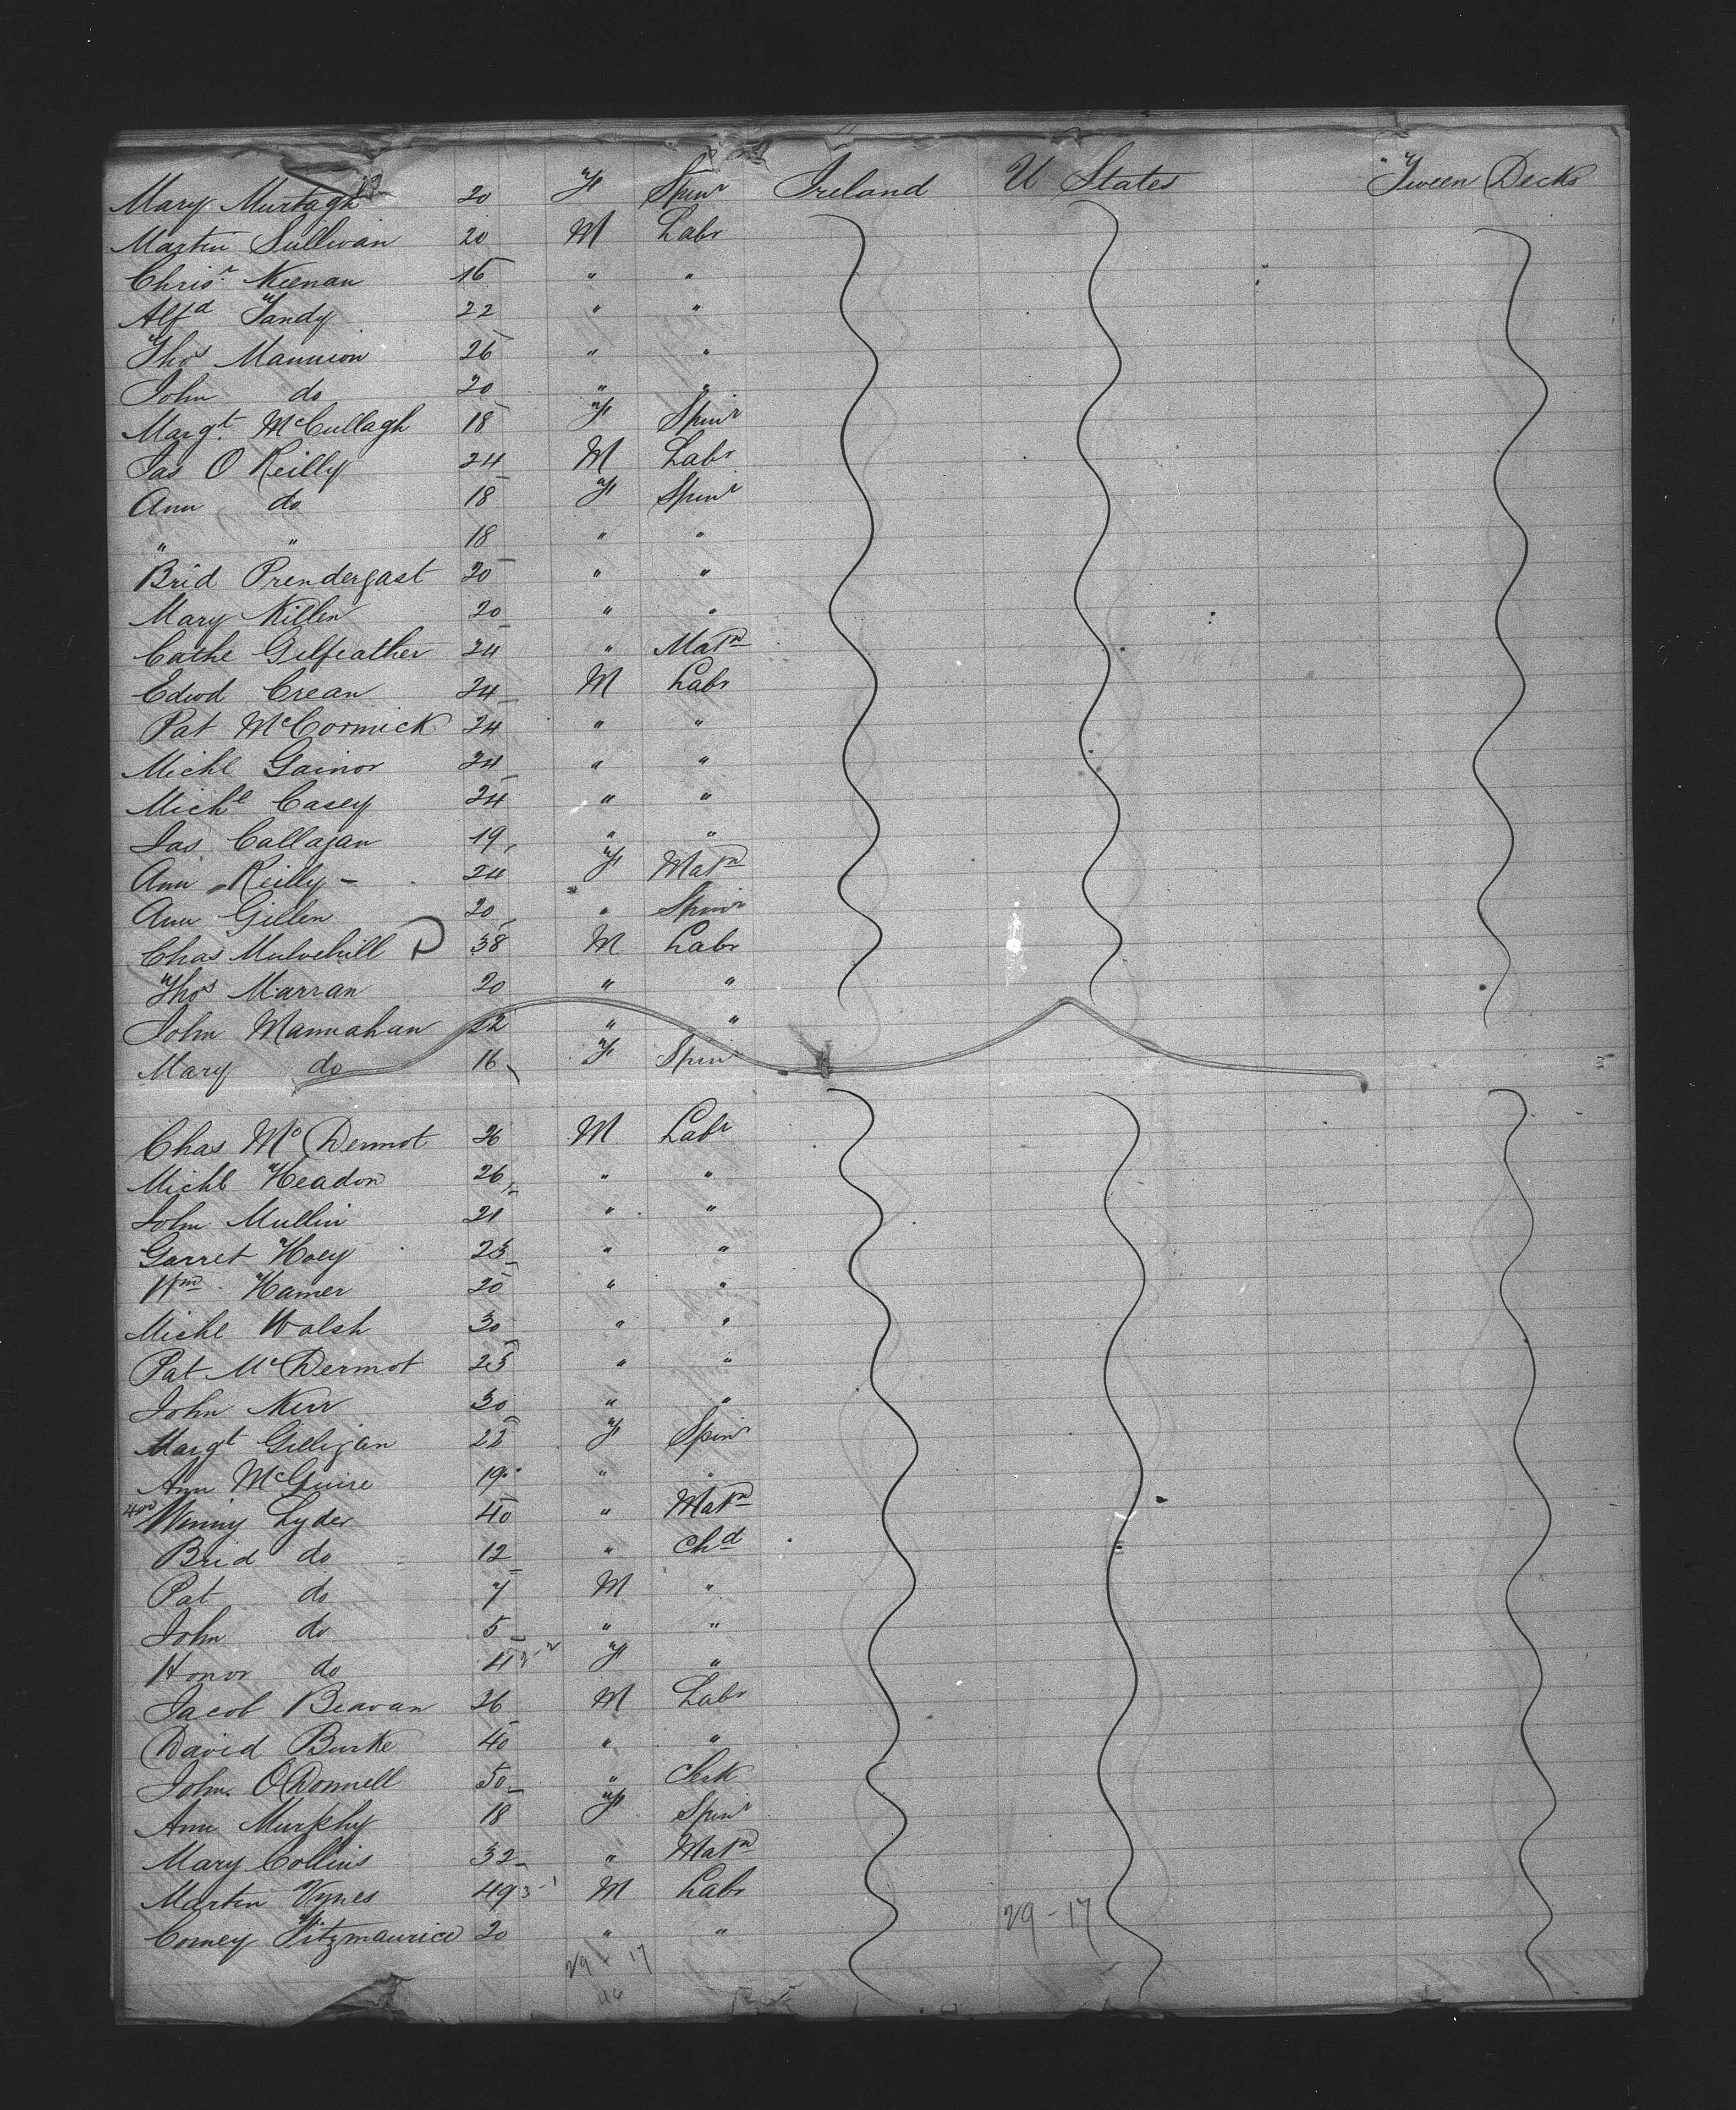 Mary Murtagh 20 F Spinr Ireland U States Tween Decks
Martin Sullivan 20 M Labr
Chrisr Keenan 16 " "
Alfd Tandy 22 " "
Thos Mannion 26 " "
John do 20 " "
Margt McCullagh 18 F Spinr
Jas O Reilly 24 M Labr
Ann do 18 F Spinr
" " 18 " "
Brid Prendergast 20 " "
Mary Killen 20 " "
Cathe Gilfeather 24 " Matn
Edwd Crean 24 M Labr
Pat McCormick 24 " "
Michl Gainor 24 " "
Michl Casey 24 " "
Jas Callagan 19 " "
Ann Reilly 24 F Matn
Ann Gillen 20 " Spinr
Chas Mulvehill 38 M Labr
Thos Marran 20 " "
John Mannahan 22 " "
Mary do 16 F Spinr
Chas McDermot 26 M Labr
Michl Headon 26 " "
John Mullin 21 " "
Garret Hoey 23 " "
Wm Hamer 20 " "
Michl Walsh 30 " "
Pat McDermot 23 " "
John Kerr 30 " "
Margt Gilligan 22 F Spinr
Ann McGuire 19 " "
400 Winny Lyder 40 " Matn
Brid do 12 " Chd
Pat do 7 M "
John do 5 " "
Honor do 4 F "
Jacob Beavan 26 M Labr
David Burke 40 " "
John ODonnell 50 " Clrk
Ann Murphy 18 F Spinr
Mary Collins 32 " Matn
Martin Vynes 49 M Labr
Corney Fitzmaurice 20 " "
29-17
29 - 17
46